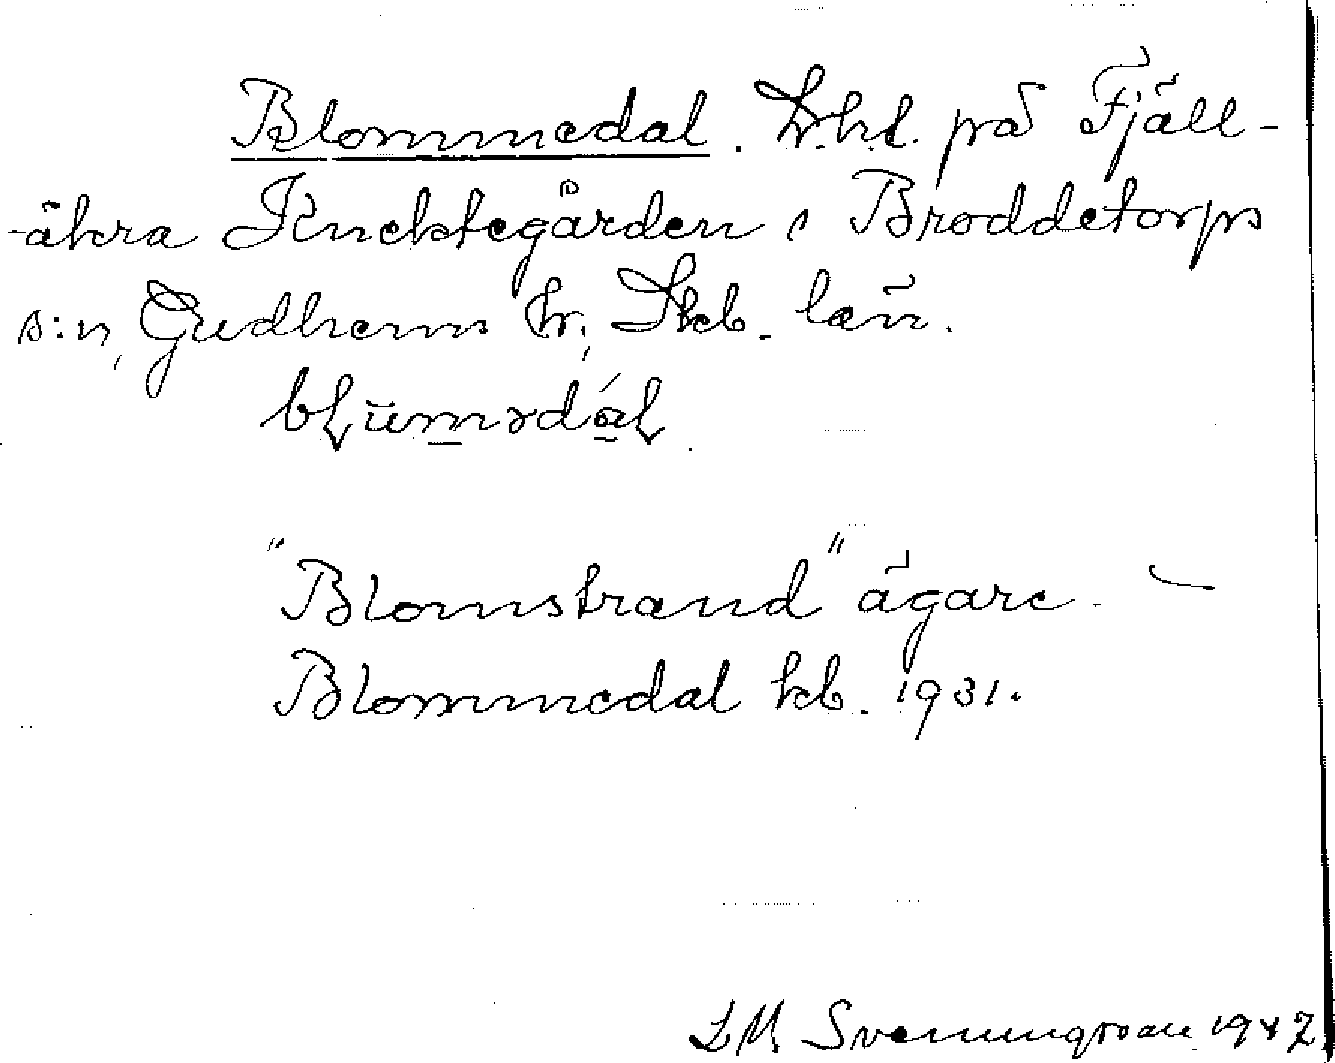 Blommedal. L.h.l. på Fjäll-
-åkra Knektegården i Broddetorps
s:n, Gudhems hr; Skb. län.
"Blomstrand" ägare
Blommedal kb. 1931.
L M Svenungsson 1947